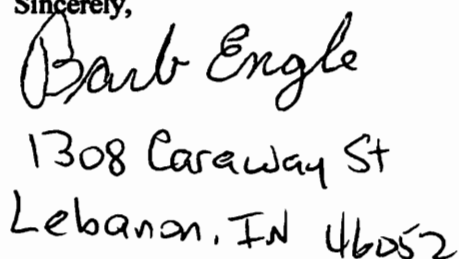 Sincerely,
Barb Engle
1308 Caraway St
Lebanon, IN 46052